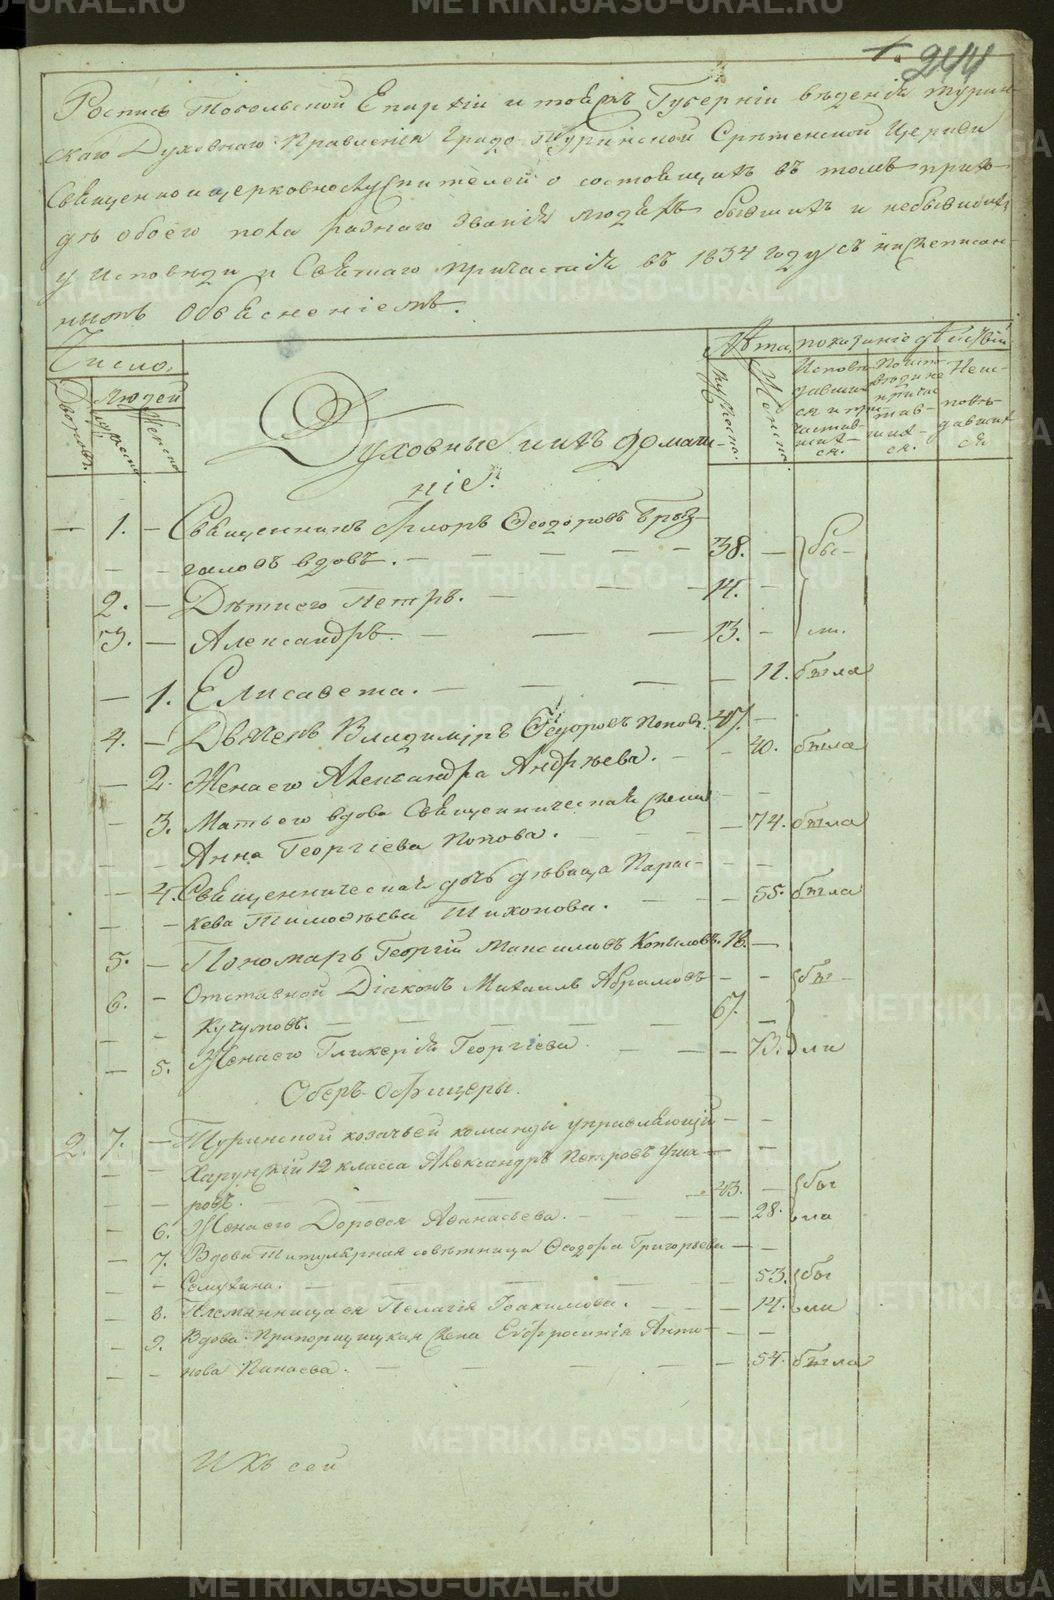 1. 244
Роспись Тобольской Епархiи и тойжъ Губернiи вѣденiя Турин-
скаго Духовнаго Правленiя Градо-Туринской Срѣтенской Церкви
Священно и церковнослужителей о состоящихъ въ томъ прихо-
дѣ обоего пола разнаго званiя людяхъ бывшихъ и небывшихъ
у Исповѣди и Святаго Причастiя въ 1834 году съ нижеписан-
нымъ объясненiемъ.
Число. Лѣта показанiе дѣйствiй
Дворовъ. Людей Мужеска. Женска Мужеска. Женска. Исповѣ-
давши-
ся и при-
частив-
ших-
ся. Неис-
повѣ-
давших-
ся
Духовные и ихъ домаш-
нiе.
1. Священникъ Флоръ Феодоровъ
вдовъ. 38. бы-
2. Дѣти его Петръ. 14.
3. Александръ. 13. ли.
1. Елисавета. 11. была
4. Дьячекъ Владимiръ Феодоровъ Поповъ. 47.
2. Жена его Александра Андрѣева. 40. была
3. Мать его вдова Священническая жена
Анна Георгiева Попова. 74. была
4. Священническая дочь дѣвица Парас-
кева Тимофѣева Тихонова. 55. была
5. Пономарь Георгiй Максимовъ Копыловъ. 18.
6. Отставной Дiаконъ Михаилъ Абрамовъ бы-
Кугумовъ. 67.
5. Жена его Гликерiя Георгiева 73. ли
Оберъ-Офицеры.
2. 7. Туринской козачьей команды управляющiй
Харунжiй 12 класса Александръ Петровъ Уша-
ровъ. 43. бы
6. Жена его Дорофея Афанасьева. 28. ли
7. Вдова Титулярная совѣтница Феодора Григорьева
53. бы
8. Племянница ея Пелагiя Iоакимова. 14. ли
9. Вдова Прапорщицкая жена Евфросинiя Анти-
нова Панаева. 54. была
Ихъ сей
METRIKI.GASO-URAL.RU